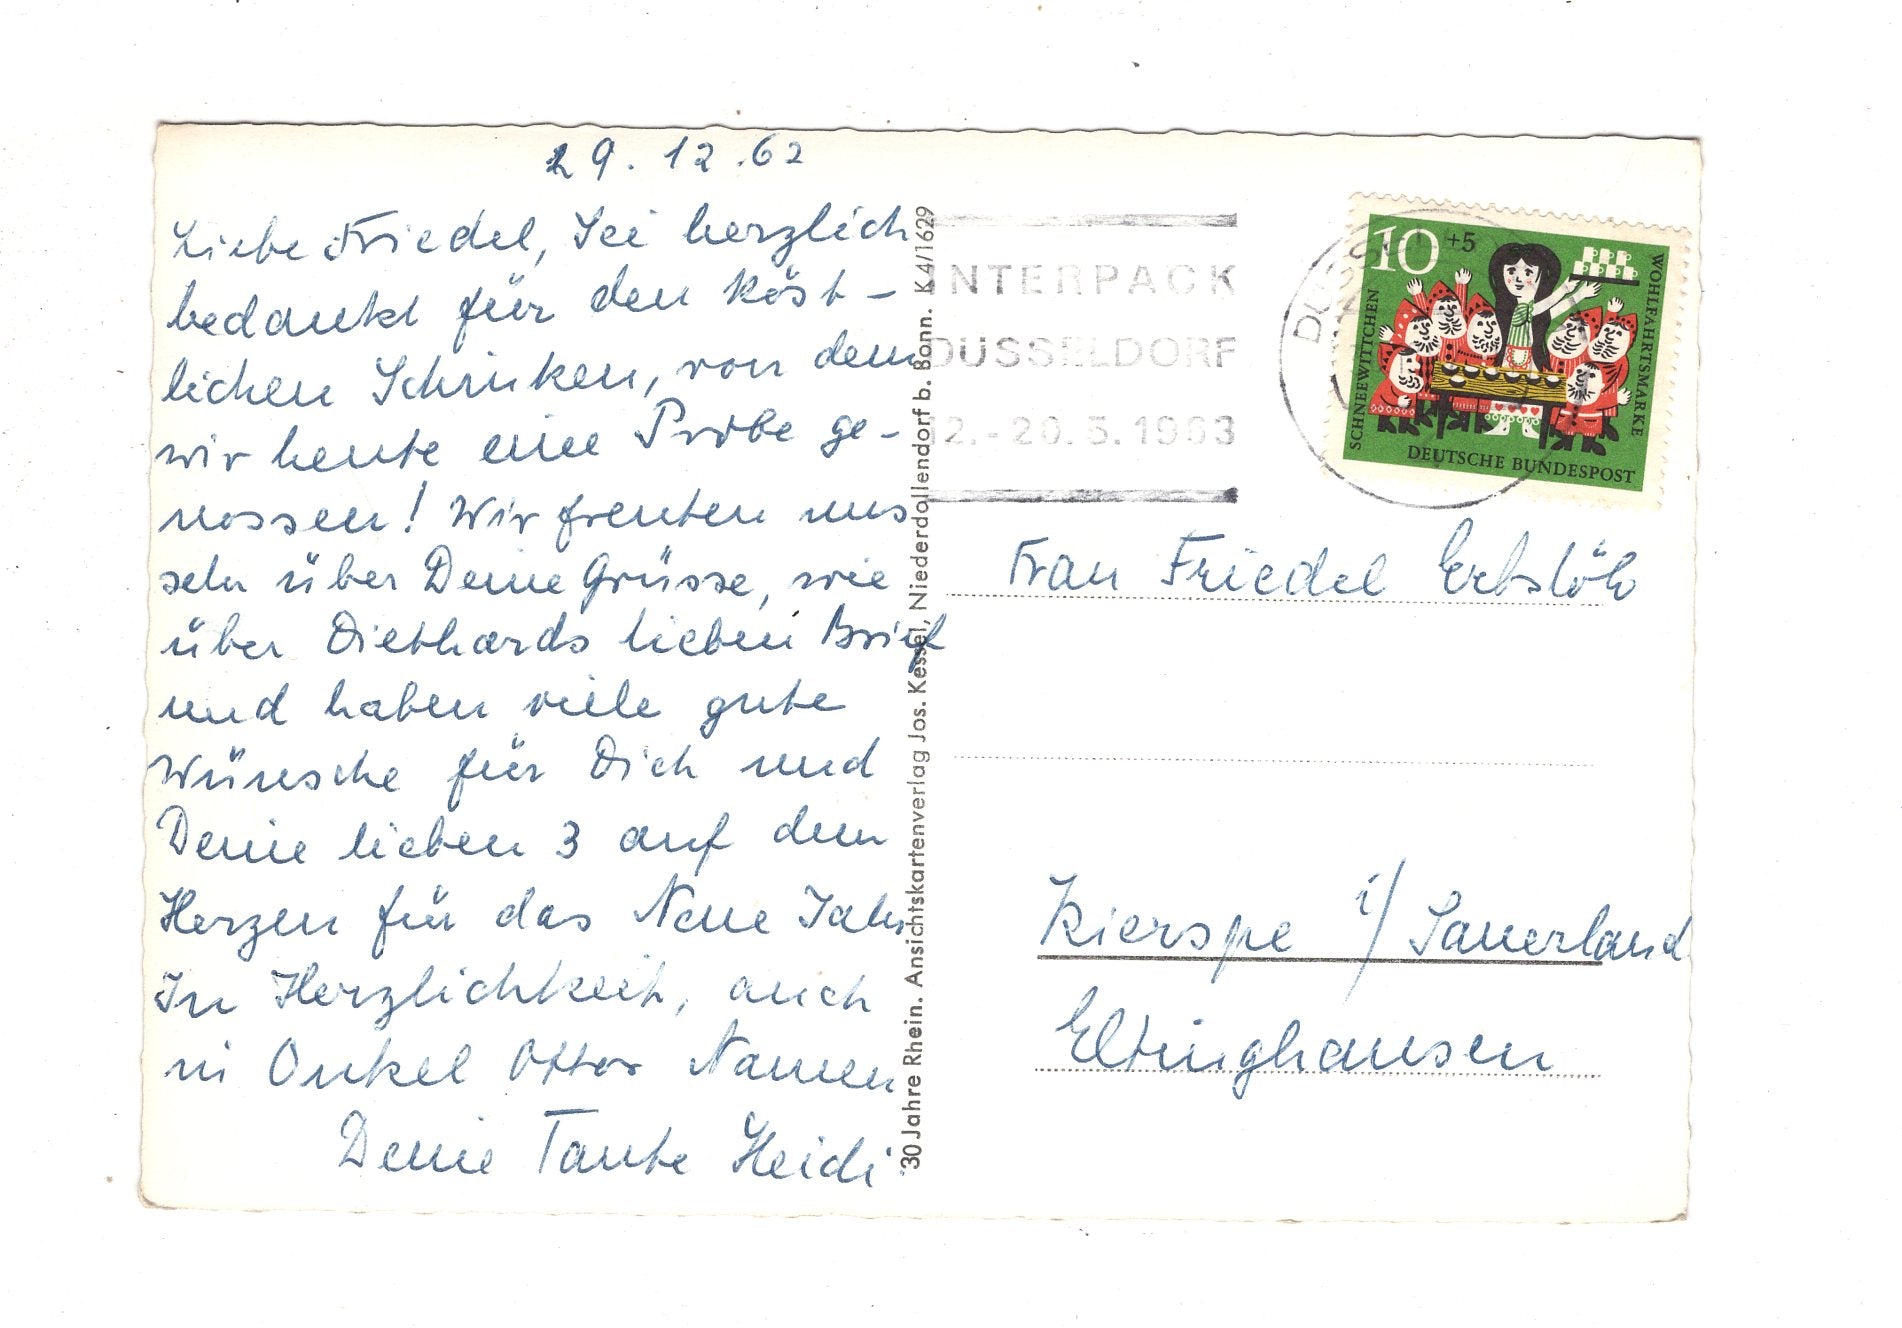 29.12.62
Liebe Friedel, Sei herzlich
bedankt für den köst-
lichen Schinken, von dem
wir heute eine Probe ge-
nossen! Wir freuten uns
sehr über Deine Grüsse, wie
über Diethards lieben Brief
und haben viele gute
Wünsche für Dich und
Deine lieben 3 auf dem
Herzen für das Neue Jahr
In Herzlichkeit, auch
in Onkel Ottos Namen
Deine Tante Heidi
30 Jahre Rhein. Ansichtskartenverlag Jos. Kessel, Niederdollendorf b. Bonn. K4/1629
INTERPACK
DÜSSELDORF
12.-20.5.1963
10 +5
SCHNEEWITTCHEN
WOHLFAHRTSMARKE
DEUTSCHE BUNDESPOST
Frau Friedel Erbslöh
Kierspe i/ Sauerland
Eltinghausen